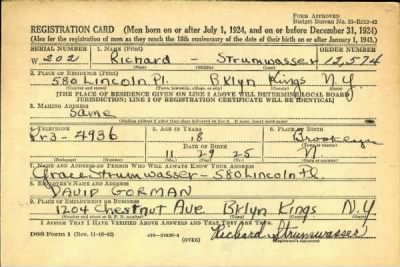 Form Approved
Budget Bureau No. 33-R012-42
REGISTRATION CARD (Men born on or after July 1, 1924, and on or before December 31, 1924)
(Also for the registration of men as they reach the 18th anniversary of the date of their birth on or after January 1, 1943.)
SERIAL NUMBER 1. NAME (Print) ORDER NUMBER
W 202 Richard - Strumwasser 12,574
(First) (Middle) (Last)
2. PLACE OF RESIDENCE (Print)
580 Lincoln Pl. Bklyn Kings N.Y
[THE PLACE OF RESIDENCE GIVEN ON LINE 2 ABOVE WILL DETERMINE LOCAL BOARD
JURISDICTION; LINE 2 OF REGISTRATION CERTIFICATE WILL BE IDENTICAL]
3. MAILING ADDRESS
Same
[Mailing address if other than place indicated on line 2. If same, insert word same]
4. TELEPHONE 5. AGE IN YEARS 6. PLACE OF BIRTH
Pr 3-4936 18 Brooklyn
DATE OF BIRTH
11 29 25 N.Y.
(Exchange) (Number) (Mo.) (Day) (Yr.) (State or country)
7. NAME AND ADDRESS OF PERSON WHO WILL ALWAYS KNOW YOUR ADDRESS
Grace Strumwasser - 580 Lincoln Pl
8. EMPLOYER'S NAME AND ADDRESS
DAVID GORMAN
9. PLACE OF EMPLOYMENT OR BUSINESS
1204 Chestnut Ave. Bklyn Kings N.Y.
I AFFIRM THAT I HAVE VERIFIED ABOVE ANSWERS AND THAT THEY ARE TRUE.
DSS Form 1 (Rev. 11-16-42) (OVER) Richard Strumwasser